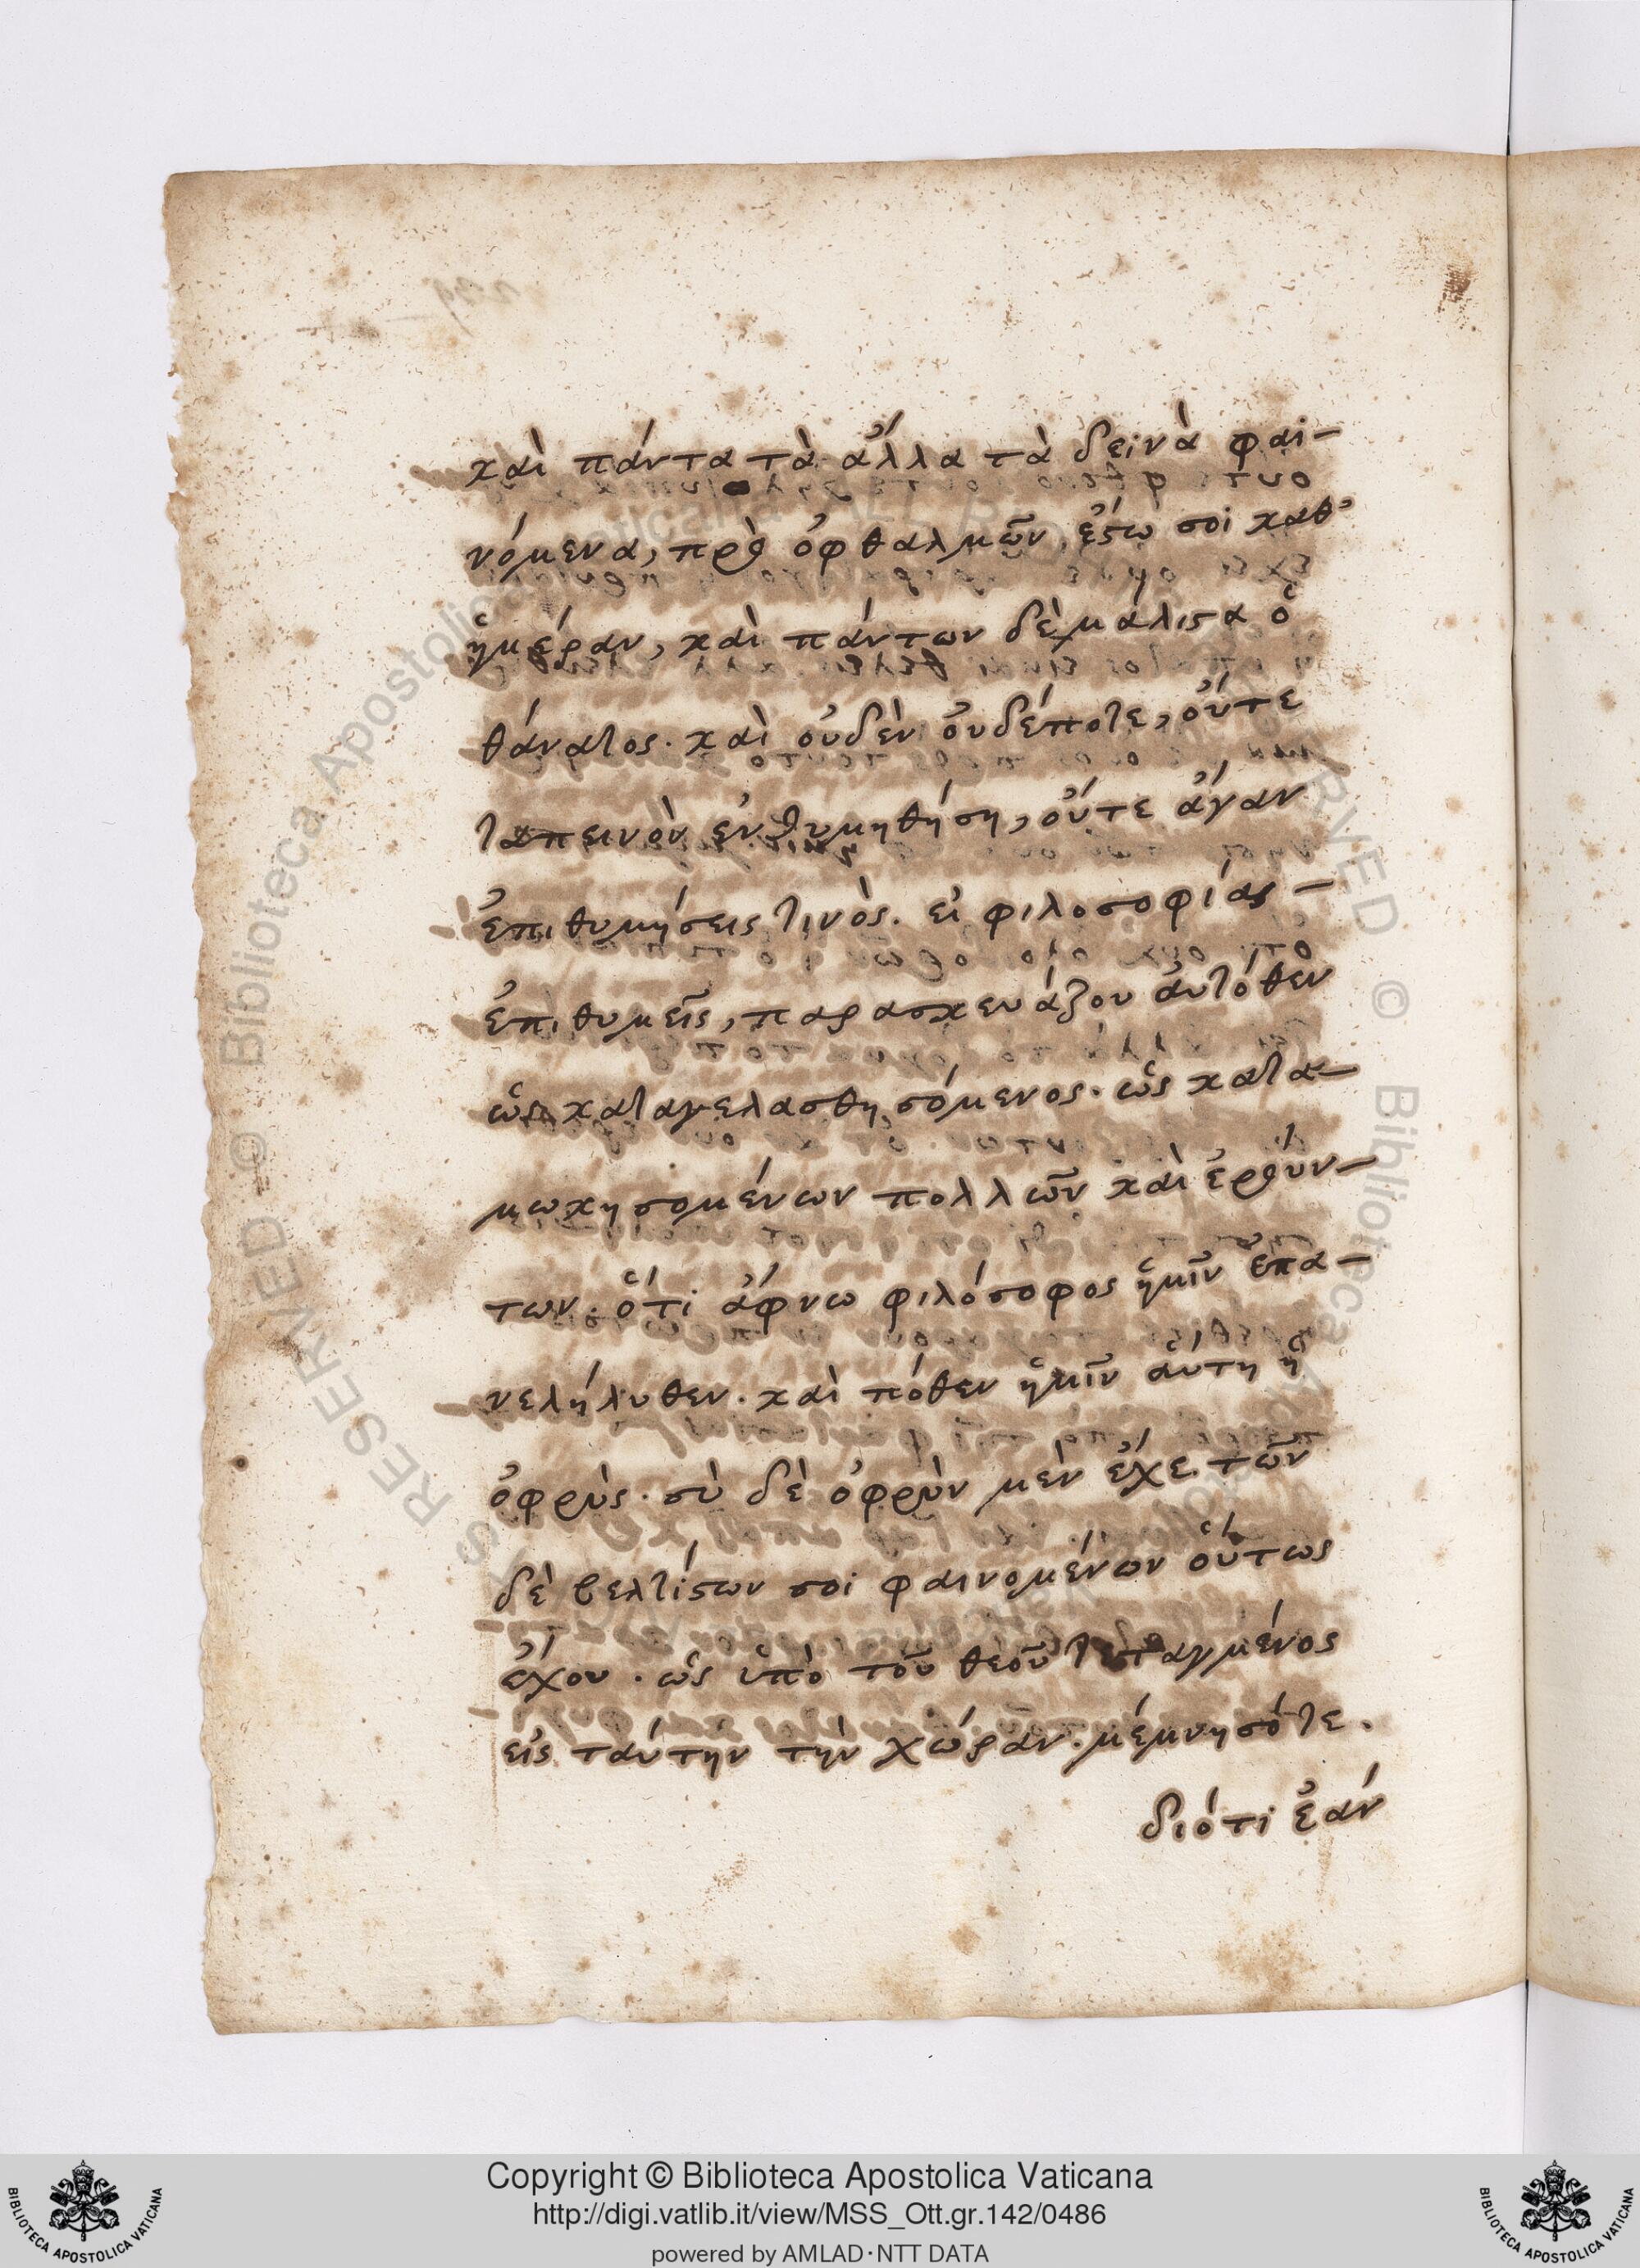 καὶ πάντα τὰ ἄλλα τὰ δεινὰ φαι-
νόμενα, πρὸ ὀφθαλμῶν ἔστω σοι καθ'
ἡμέραν, καὶ πάντων δὲ μάλιστα ὁ
θάνατος. καὶ οὐδὲν οὐδέποτε, οὔτε
ταπεινὸν ἐνθυμηθήση, οὔτε ἄγαν
ἐπιθυμήσεις τινὸς. εἰ φιλοσοφίας-
ἐπιθυμεῖς, παρασκευάζου αὐτόθεν
ὡς καταγελασθησόμενος. ὡς κατα-
μωκησομένων πολλῶν καὶ ἐρούν-
των. ὅτι ἄφνω φιλόσοφος ἡμῖν ἐπα-
νελήλυθεν. καὶ πόθεν ἡμῖν αὕτη ἡ
ὀφρὺς. σὺ δὲ ὀφρὺν μὲν ἔχε. τῶν
δὲ βελτίστων σοι φαινομένων οὕτως
ἔχου. ὡς ὑπὸ τοῦ θεοῦ τεταγμένος
εἰς ταύτην τὴν χώραν. μέμνησό τε.
διότι ἐάν
RESERVED © Biblioteca Apostolica Vaticana
Copyright © Biblioteca Apostolica Vaticana
http://digi.vatlib.it/view/MSS_Ott.gr.142/0486
powered by AMLAD·NTT DATA
BIBLIOTECA APOSTOLICA VATICANA
BIBLIOTECA APOSTOLICA VATICANA